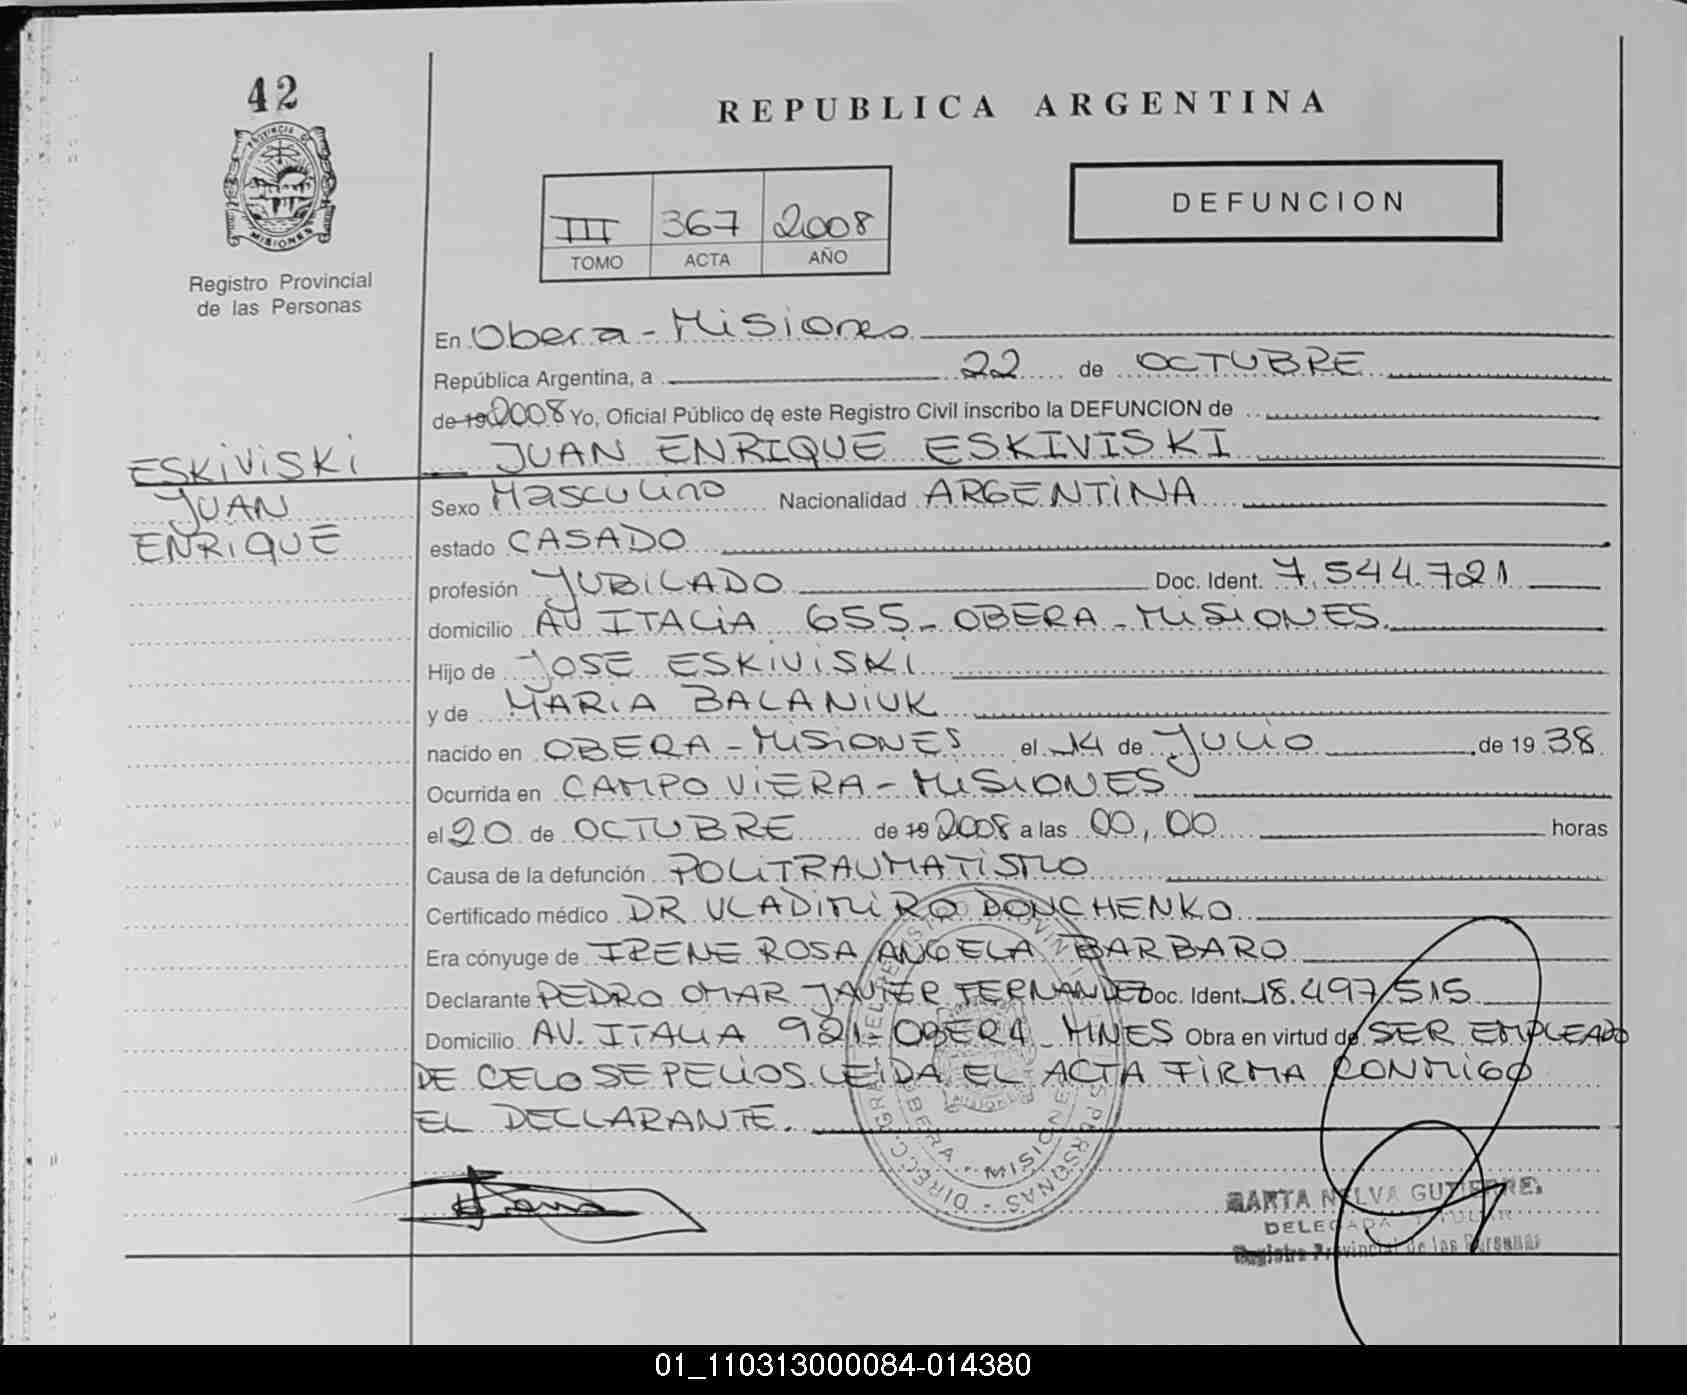 42
PROVINCIA DE
MISIONES
Registro Provincial
de las Personas
REPUBLICA ARGENTINA
III 367 2008
TOMO ACTA AÑO
DEFUNCION
En Obera - Misiones
República Argentina, a 22 de OCTUBRE
de 19 2008 Yo, Oficial Público de este Registro Civil inscribo la DEFUNCION de
JUAN ENRIQUE ESKIVISKI
ESKIVISKI
JUAN
ENRIQUE
Sexo Masculino Nacionalidad ARGENTINA
estado CASADO
profesión JUBILADO Doc. Ident. 7.544.721
domicilio AV ITALIA 655 - OBERA - MISIONES.
Hijo de JOSE ESKIVISKI
y de MARIA BALANIUK
nacido en OBERA - MISIONES el 14 de JULIO de 19 38
Ocurrida en CAMPO VIERA - MISIONES
el 20 de OCTUBRE de 19 2008 a las 00,00 horas
Causa de la defunción POLITRAUMATISMO
Certificado médico DR VLADIMIRO DONCHENKO
Era cónyuge de IRENE ROSA ANGELA BARBARO
Declarante PEDRO OMAR JAVIER FERNANDEZ Doc. Ident. 18.497.515
Domicilio AV. ITALIA 921 - OBERA - MNES Obra en virtud de SER EMPLEADO
DE CELO SEPELIOS. LEIDA EL ACTA FIRMA CONMIGO
EL DECLARANTE.
OBERA - MISIONES
MARTA NELVA GUTIERREZ
DELEGADA TITULAR
Registro Provincial de las Personas
01_110313000084-014380